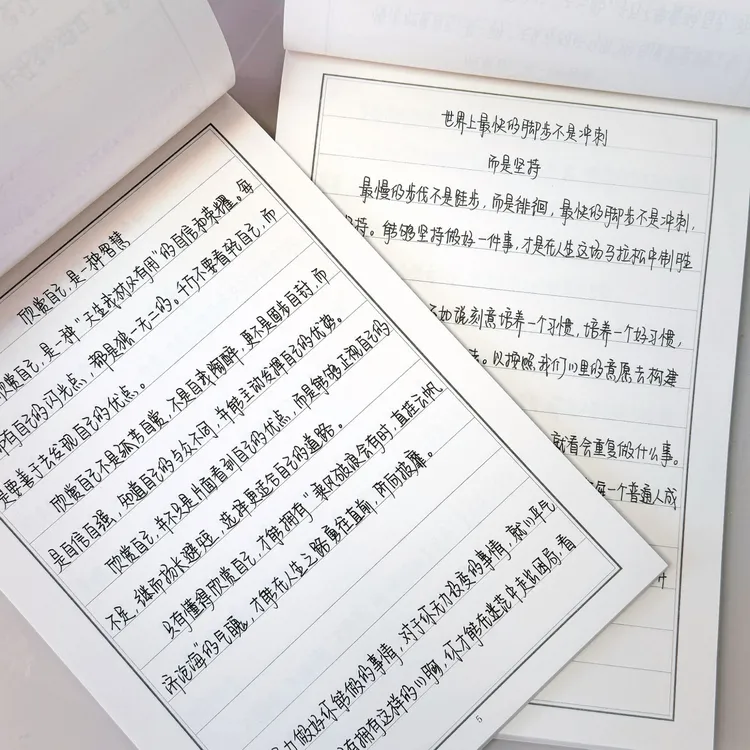 欣赏自己,是一种智慧
欣赏自己,是一种"天生我材必有用"的自信和荣耀。每
有自己的闪光点,都是独一无二的。千万不要看轻自己,而
是要善于去发现自己的优点。
欣赏自己不是孤芳自赏,不是自我陶醉,更不是固步自封,而
是自信自强,知道自己的与众不同,并能主动发挥自己的优势。
欣赏自己,并不只是片面看到自己的优点,而是能够正视自己的
不足,继而扬长避短,选择更适合自己的道路。
只有懂得欣赏自己,才能拥有"乘风破浪会有时,直挂云帆
济沧海"的气魄,才能在人生之路勇往直前,所向披靡。
力做好你能做的事情,对于你无力改变的事情,就心平气
有拥有这样的心胸,你才能在迷茫中走出困局,看
5
世界上最快的脚步不是冲刺
而是坚持
最慢的步伐不是跬步,而是徘徊,最快的脚步不是冲刺,
坚持。能够坚持做好一件事,才是在人生这场马拉松中制胜
如说刻意培养一个习惯,培养一个好习惯,
以按照我们心里的意愿去构建
就看会重复做什么事。
每一个普通人成